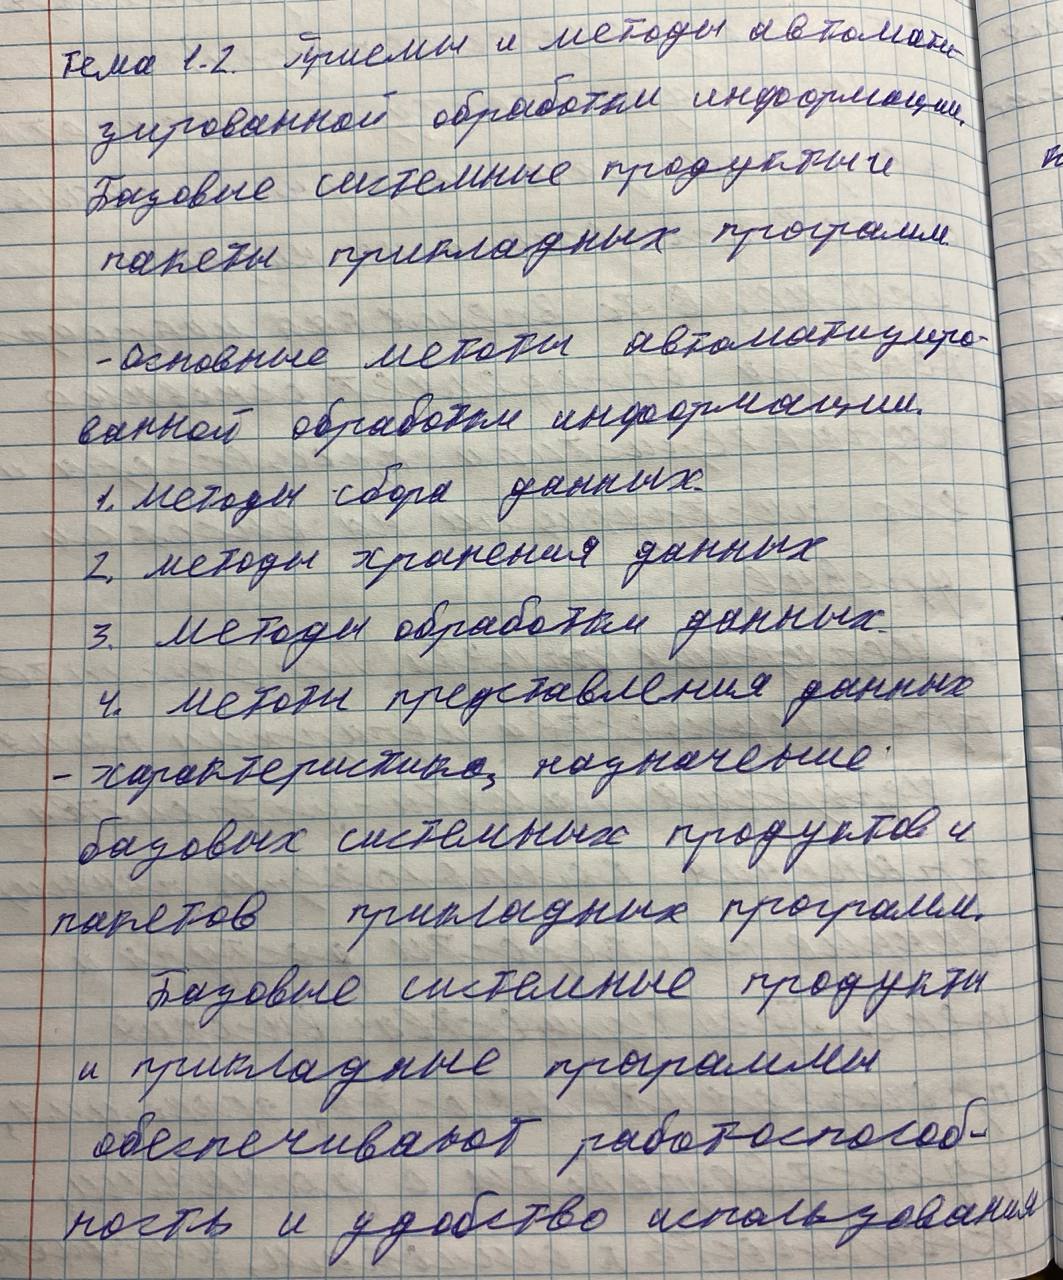 Тема 1.2. Приемы и методы автомати-
зированной обработки информации.
Базовые системные продукты и
пакеты прикладных программ.
- Основные метоты автоматизиро-
ванной обработки информации.
1. Методы сбора данных.
2. методы хранения данных
3. Методы обработки данных.
4. метоты представления данных
- характеристика, назначение
базовых системных продуктов и
пакетов прикладных программ.
Базовые системные продукты
и прикладные программы
обеспечивают работоспособ-
ность и удобство использования